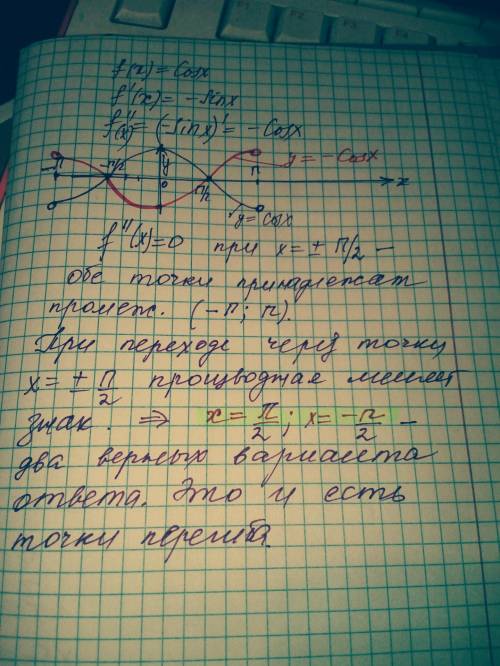 f(x) = Cosx
f'(x) = -Sinx
f''(x) = (-Sinx)' = -Cosx
-π -π/2 y 0 π/2 π y = -Cosx x
y = Cosx
f''(x)=0 при x = ± π/2 –
обе точки принадлежат
промеж. (-π; π).
При переходе через точку
x = ± π/2 производная меняет
знак. ⇒ x = π/2; x = -π/2 –
два верных варианта
ответа. Это и есть
точки перегиба